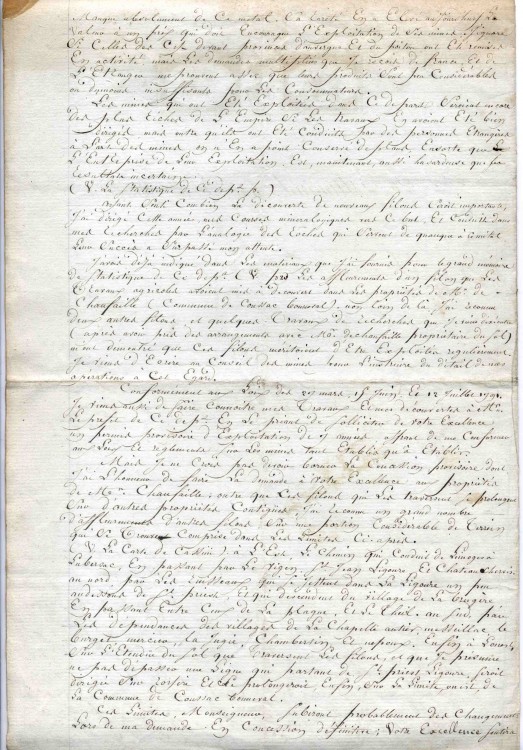 Manque absolument de ce métal. Sa rareté En a Elevé aujourd'hui la
valeur à un prix qui doit Encourager l'Exploitation de Ses mines
Celles des Ci devant provinces d'auvergne Et du poitou ont été remises
En activité, mais les demandes multipliées que J'ai reçues de france Et de
L'Etranger me prouvent assez que leurs produits Sont peu Considérables
ou du moins insuffisants pour les Consommateurs.
Les mines qui ont Eté Exploitées dans Ce depart. Seraient encore
des plus riches de L'Empire Si Les travaux En avaient Eté bien
dirigés mais outre qu'ils ont Eté Conduits par des personnes Etrangères
à L'art des mines on n'En a point Conservé de plans, Ensorte que
L'Entreprise de Leur Exploitation Est, maintenant, aussi hasardeuse que les
resultats incertains.
(V. La Statistique de Ce dept. p. )
Sachant Combien La découverte de nouveaux filons Serait importante,
J'ai dirigé Cette année, mes Courses minéralogiques vers Ce but, Et Conduit dans
mes recherches par L'analogie des roches qui Servent de gangue à L'etain
Leur Succès a Surpassé mon attente.
J'avais déjà indiqué dans Les matériaux que J'ai fournis pour Le grand mémoire
de Statistique de Ce dept. (V. p. ) Les affleurements d'un filon que Les
travaux agricoles avaient mis à découvert dans Les propriétés de Mr. de
Chauffaille (Commune de Coussac bonneval) non Loin de Là J'ai reconnu
deux autres filons et quelques travaux de recherches que
(après avoir pris des arrangements avec Mr. de chauffaille propriétaire du Sol)
m'ont demontré que Ces filons méritoient d'Etre Exploités régulièrement.
Je viens d'Ecrire au Conseil des mines pour L'instruire du détail de mes
opérations à Cet Egard.
Conformément aux Lois des 27 mars, 15 Juin, Et 12 Juillet 1791.
Je viens aussi de faire Connoître mes Travaux Et mes découvertes à Mr.
Le prefet de Ce dept. En Le priant de Solliciter de Votre Excellence
un permis provisoire d'Exploitation de années, offrant de me Conformer
aux Lois Et règlements Sur Les mines tant Etablis qu'à Etablir.
Mais Je ne Crois pas devoir borner La Concession provisoire dont
J'ai L'honneur de faire La demande à Votre Excellence aux propriétés
de Mr. Chauffaille, outre que Les filons qui Les traversent Se prolongent
Sur d'autres propriétés Contigues, J'ai reconnu un grand nombre
d'affleurements d'autres filons Sur une portion Considérable de Terrein
qui Se Trouve Comprise dans Les Limites Ci-après.
(V. La Carte de Cassini) à L'Est, Le Chemin qui Conduit de Limoges à
Lubersac, En passant par Le Vigen, St. Jean Ligoure Et Chateau chervix.
au nord, par Les ruisseaux qui Se jettent dans La Ligoure un peu
audessous de St. priest, Et qui descendent du village de La brugère
En passant Entre Ceux de La plagne, Et Le theil, au Sud, par
Les dépendances des villages de La Chapelle antier, meilliac, Le
burget, mercier, La Jugie, Chambertin Et nepoux. Enfin à L'ouest,
Sur L'Etendue du Sol que traversent Les filons, Et que Je présume
ne pas dépasser une Ligne qui partant de St. priest Ligoure, Serait
dirigée Sur Et Se prolongeroit, Enfin, Sur La Limite ouest de
La Commune de Coussac bonneval.
Ces Limites, Monseigneur, Subiront probablement des Changements
Lors de ma demande En Concession définitive; Votre Excellence Sentira